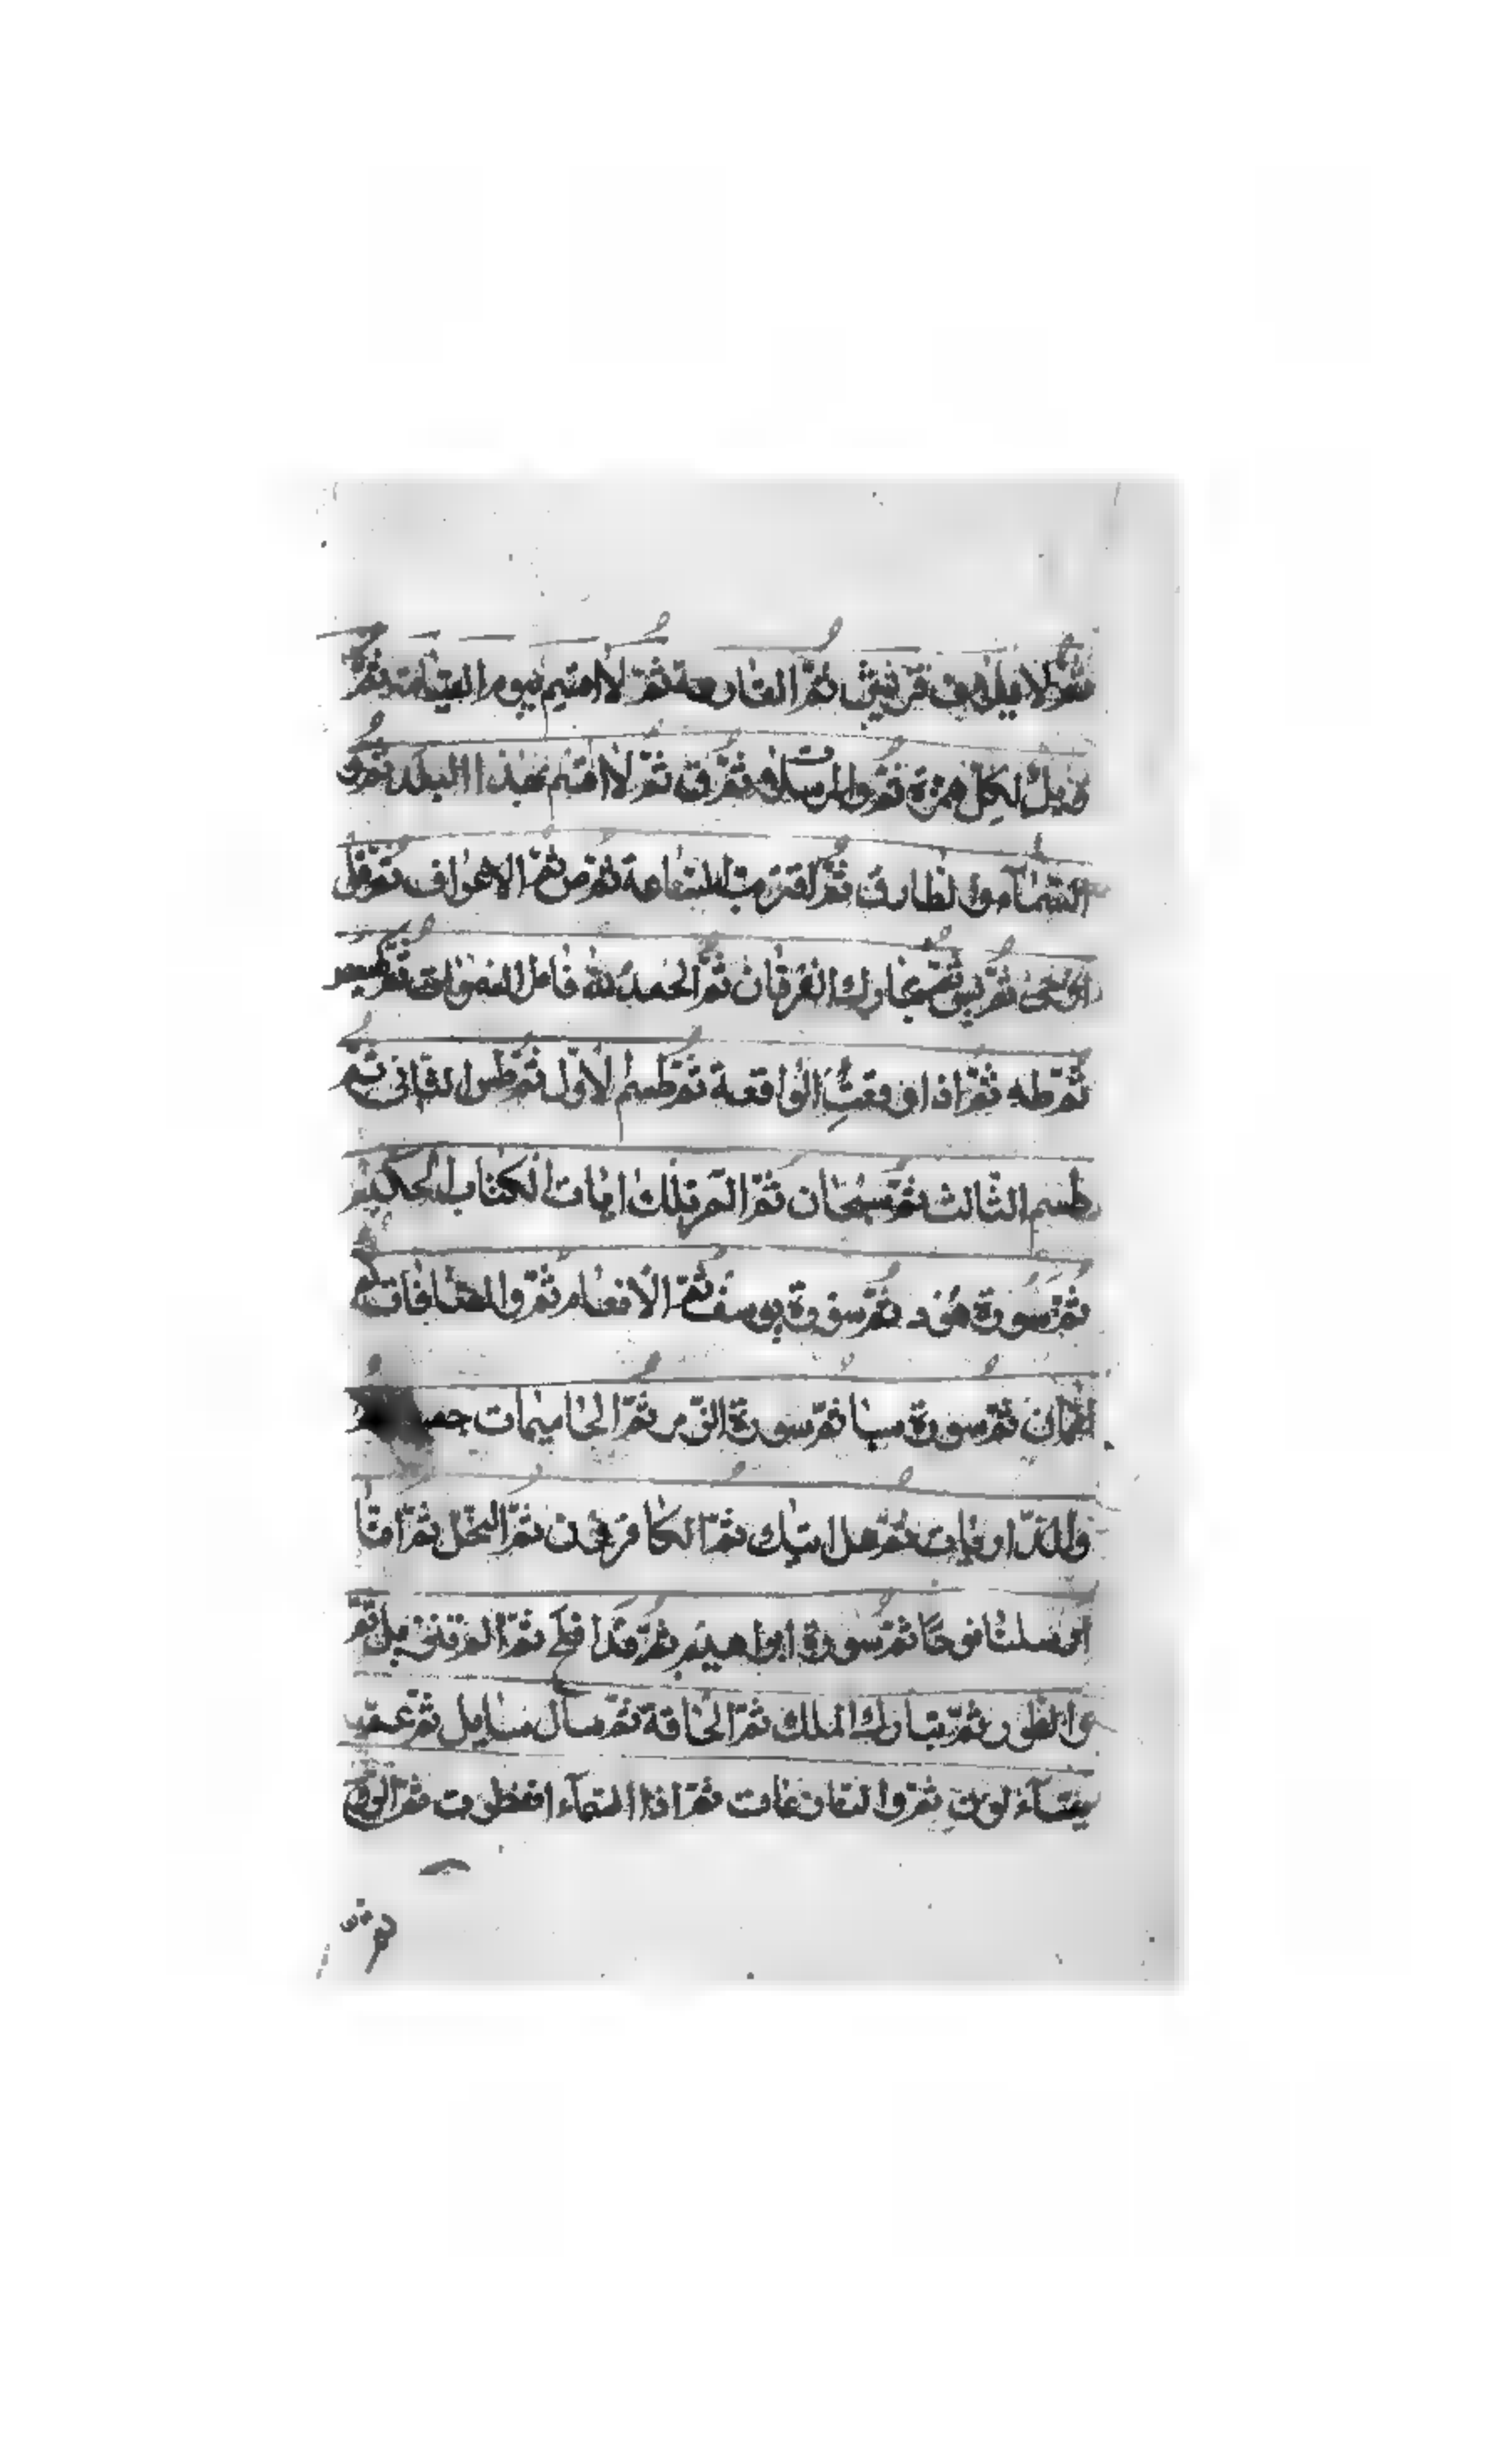 ثم لايلاف قريش ثم القارعة ثم لا اقسم بيوم القيامة ثم
ويل لكل همزة ثم والمرسلات ثم ق ثم لا اقسم بهذا البلد ثم و
السمآء والطارق ثم اقتربت الساعة ثم ص ثم الاعراف ثم قل
اوحى ثم يس ثم تبارك الفرقان ثم الحمد لله فاطر السموات ثم
ثم طه ثم اذا وقعت الواقعة ثم طسم الاول ثم طس الثانى ثم
طسم الثالث ثم سبحان ثم الم تلك ايات الكتاب الحكيم
ثم سورة هود ثم سورة يوسف ثم الانعام ثم والصافات ثم
لقمان ثم سورة سبا ثم سورة الزمر ثم الحاميمات
والذاريات ثم هل اتيك ثم الكافرون ثم النحل ثم انا
ارسلنا نوحا ثم سورة ابراهيم ثم قد افلح ثم الم تنزيل ثم
والطور ثم تبارك الملك ثم الحاقة ثم سأل سايل ثم عم
يتسآءلون ثم والنازعات ثم اذا السمآء انفطرت ثم الروم